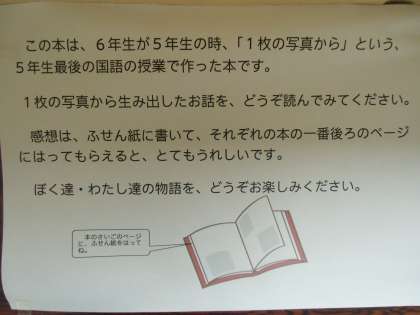 この本は、６年生が５年生の時、「１枚の写真から」という、
５年生最後の国語の授業で作った本です。
１枚の写真から生み出したお話を、どうぞ読んでみてください。
感想は、ふせん紙に書いて、それぞれの本の一番後ろのページ
にはってもらえると、とてもうれしいです。
ぼく達・わたし達の物語を、どうぞお楽しみください。
本のさいごのページ
に、ふせん紙をはって
ね。